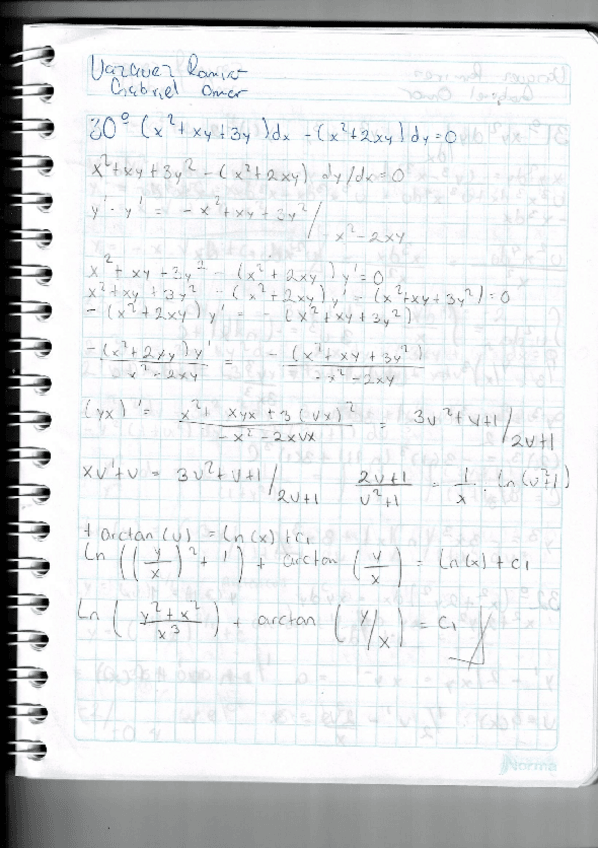 Vazquez Ramir
Gabriel Omar
30° (x²+xy+3y)dx -(x²+2xy)dy=0
x²+xy+3y² -(x²+2xy) dy/dx=0
y'-y' = -x²+xy+3y²/-x²-2xy
x²+xy+3y² -(x²+2xy)y'=0
x²+xy+3y² -(x²+2xy)y' -(x²+xy+3y²)=0
-(x²+2xy)y' = -(x²+xy+3y²)
-(x²+2xy)y'/-x²-2xy = -(x²+xy+3y²)/-x²-2xy
(yx)' = x²+xyx+3(vx)²/-x²-2xvx = 3v²+v+1/2v+1
xv'+v = 3v²+v+1/2v+1 2v+1/v²+1 = 1/x : ln(v²+1)
+ arctan(v) = ln(x)+c₁
Ln((y/x)²+1) + arctan(y/x) = Ln(x)+c₁
Ln(y²+x²/x³) + arctan(y/x) = c₁
Norma